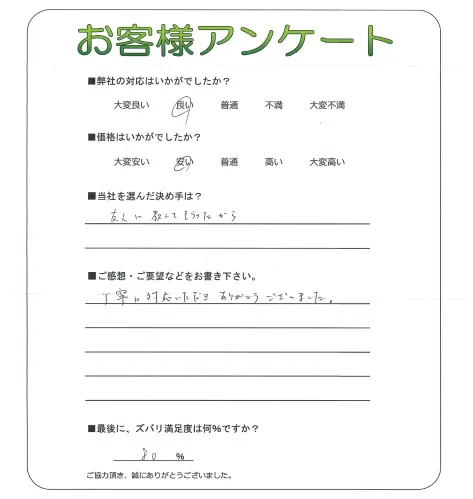 お客様アンケート
■弊社の対応はいかがでしたか？
大変良い 良い 普通 不満 大変不満
■価格はいかがでしたか？
大変安い 安い 普通 高い 大変高い
■当社を選んだ決め手は？
友人に教えてもらったから
■ご感想・ご要望などをお書き下さい。
丁寧に対応いただきありがとうございました。
■最後に、ズバリ満足度は何%ですか？
80 %
ご協力頂き、誠にありがとうございました。